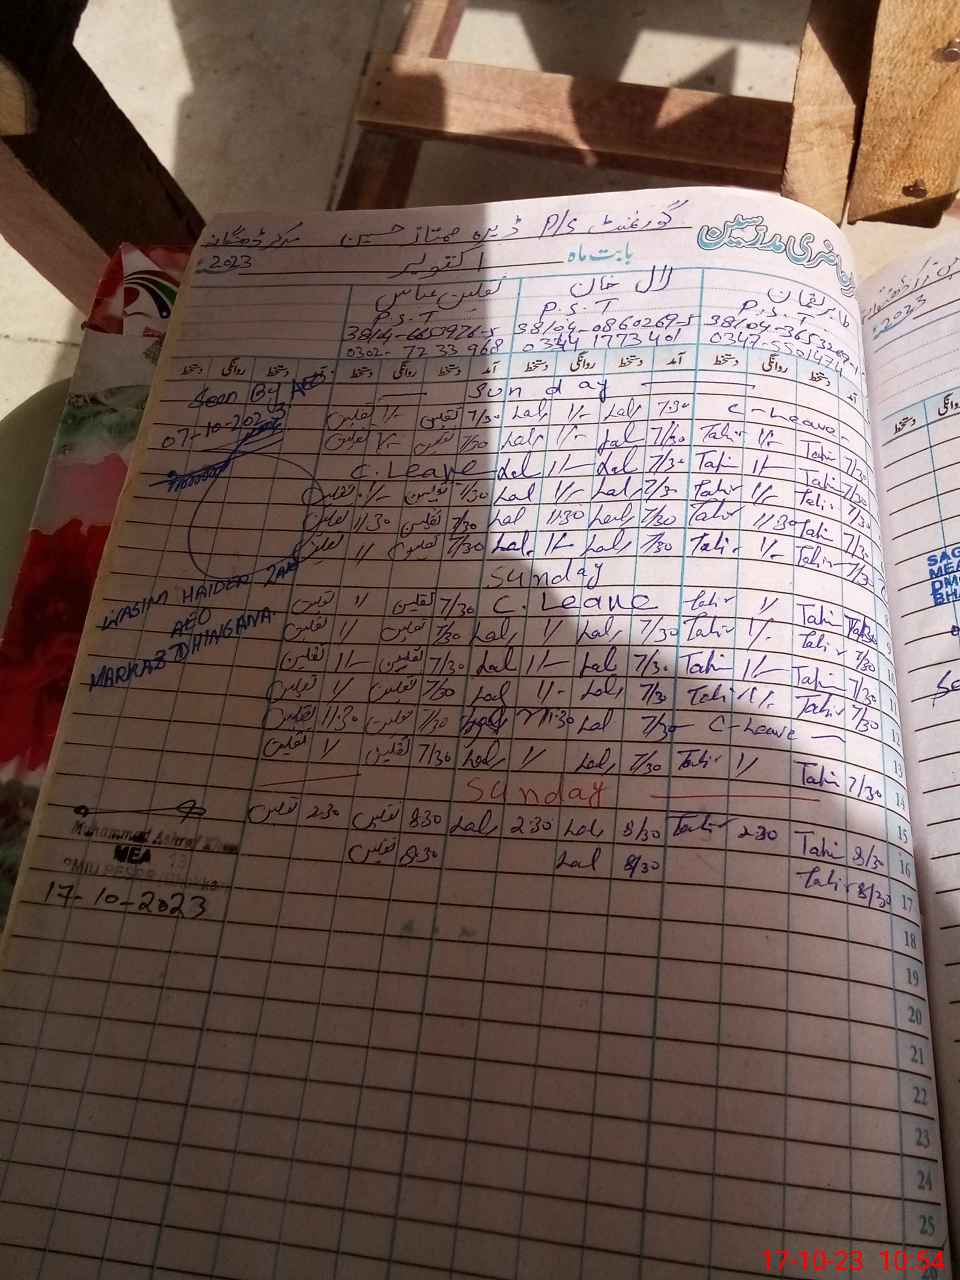 گورنمنٹ P/S ڈیرہ ممتاز حسین مرکز ڈھنگانہ
حاضری مدرسین
بابت ماہ اکتوبر 2023
طاہر لقمان
P.S.T
0347-5501474
لال خان
P.S.T
38104-0860269-5
0344 1773401
ثقلین عباس
P.S.T
0302-7233968
آمد دستخط روانگی دستخط آمد دستخط روانگی دستخط آمد دستخط روانگی دستخط
Sunday
Seen By AEO
07-10-2023
7/30 ثقلین 1/- ثقلین 7/30 Lal 1/- Lal C-Leave
7/30 Tahir 1/- Tahir 7/30 Lal 1/- Lal 7/30 ثقلین 1/- ثقلین
7/30 Tahir 1/- Tahir 7/30 Lal 1/- Lal C.Leave
7/30 Tahir 1/- Tahir 7/30 Lal 1/- Lal 7/30 ثقلین 1/- ثقلین
7/30 Tahir 11:30 Tahir 7/30 Lal 11:30 Lal 7/30 ثقلین 11:30 ثقلین
7/30 Tahir 1/- Tahir 7/30 Lal 1/- Lal 7/30 ثقلین 1/ ثقلین
Sunday
WASIM HAIDER
AEO
MARKAZ DHINGANA
7/30 Tahir 1/ Tahir C.Leave 7/30 ثقلین 1/ ثقلین
7/30 Tahir 1/- Tahir 7/30 Lal 1/ Lal 7/30 ثقلین 1/ ثقلین
7/30 Tahir 1/- Tahir 7/30 Lal 1/- Lal 7/30 ثقلین 1/- ثقلین
7/30 Tahir 1/- Tahir 7/30 Lal 1/- Lal 7/30 ثقلین 1/ ثقلین
C-Leave 7/30 Lal 11:30 7/30 ثقلین 11:30 ثقلین
7/30 Tahir 1/ Tahir 7/30 Lal 1/ Lal 7/30 ثقلین 1/ ثقلین
Sunday
8/30 Tahir 2:30 Tahir 8/30 Lal 2:30 Lal 8:30 ثقلین 2:30 ثقلین
8/30 Tahir 8/30 Lal 8:30 ثقلین
Muhammad Ashraf Khan
MEA 13
17-10-2023
12
13
14
15
16
17
18
19
20
21
22
23
24
25
2023
روانگی
دستخط
MEA
17-10-23 10:54